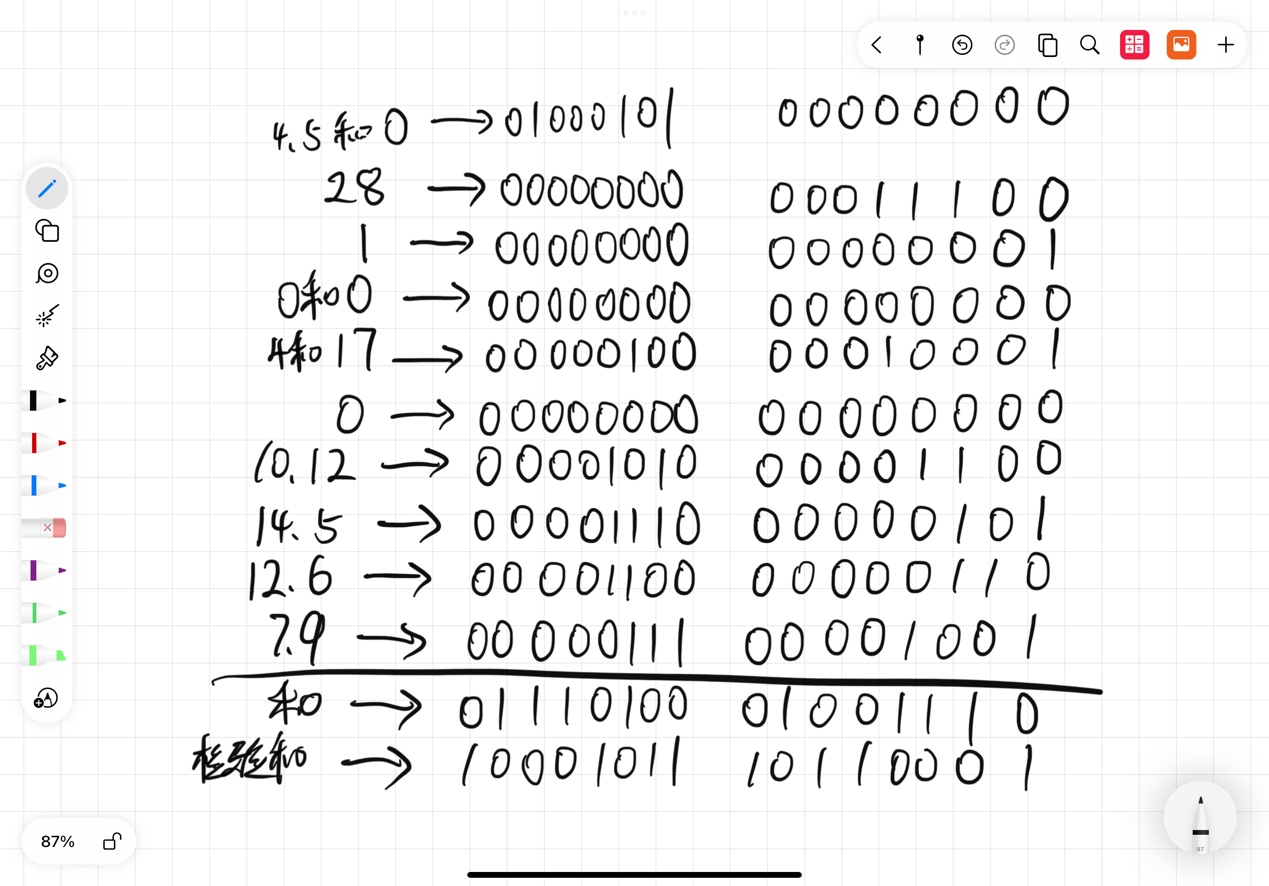 4.5和0 → 01000101 00000000
28 → 00000000 00011100
1 → 00000000 00000001
0和0 → 00000000 00000000
4和17 → 00000100 00010001
0 → 00000000 00000000
10.12 → 00001010 00001100
14.5 → 00001110 00000101
12.6 → 00001100 00000110
7.9 → 00000111 00001001
和 → 01110100 01001110
检验和 → 10001011 10110001
87%
97